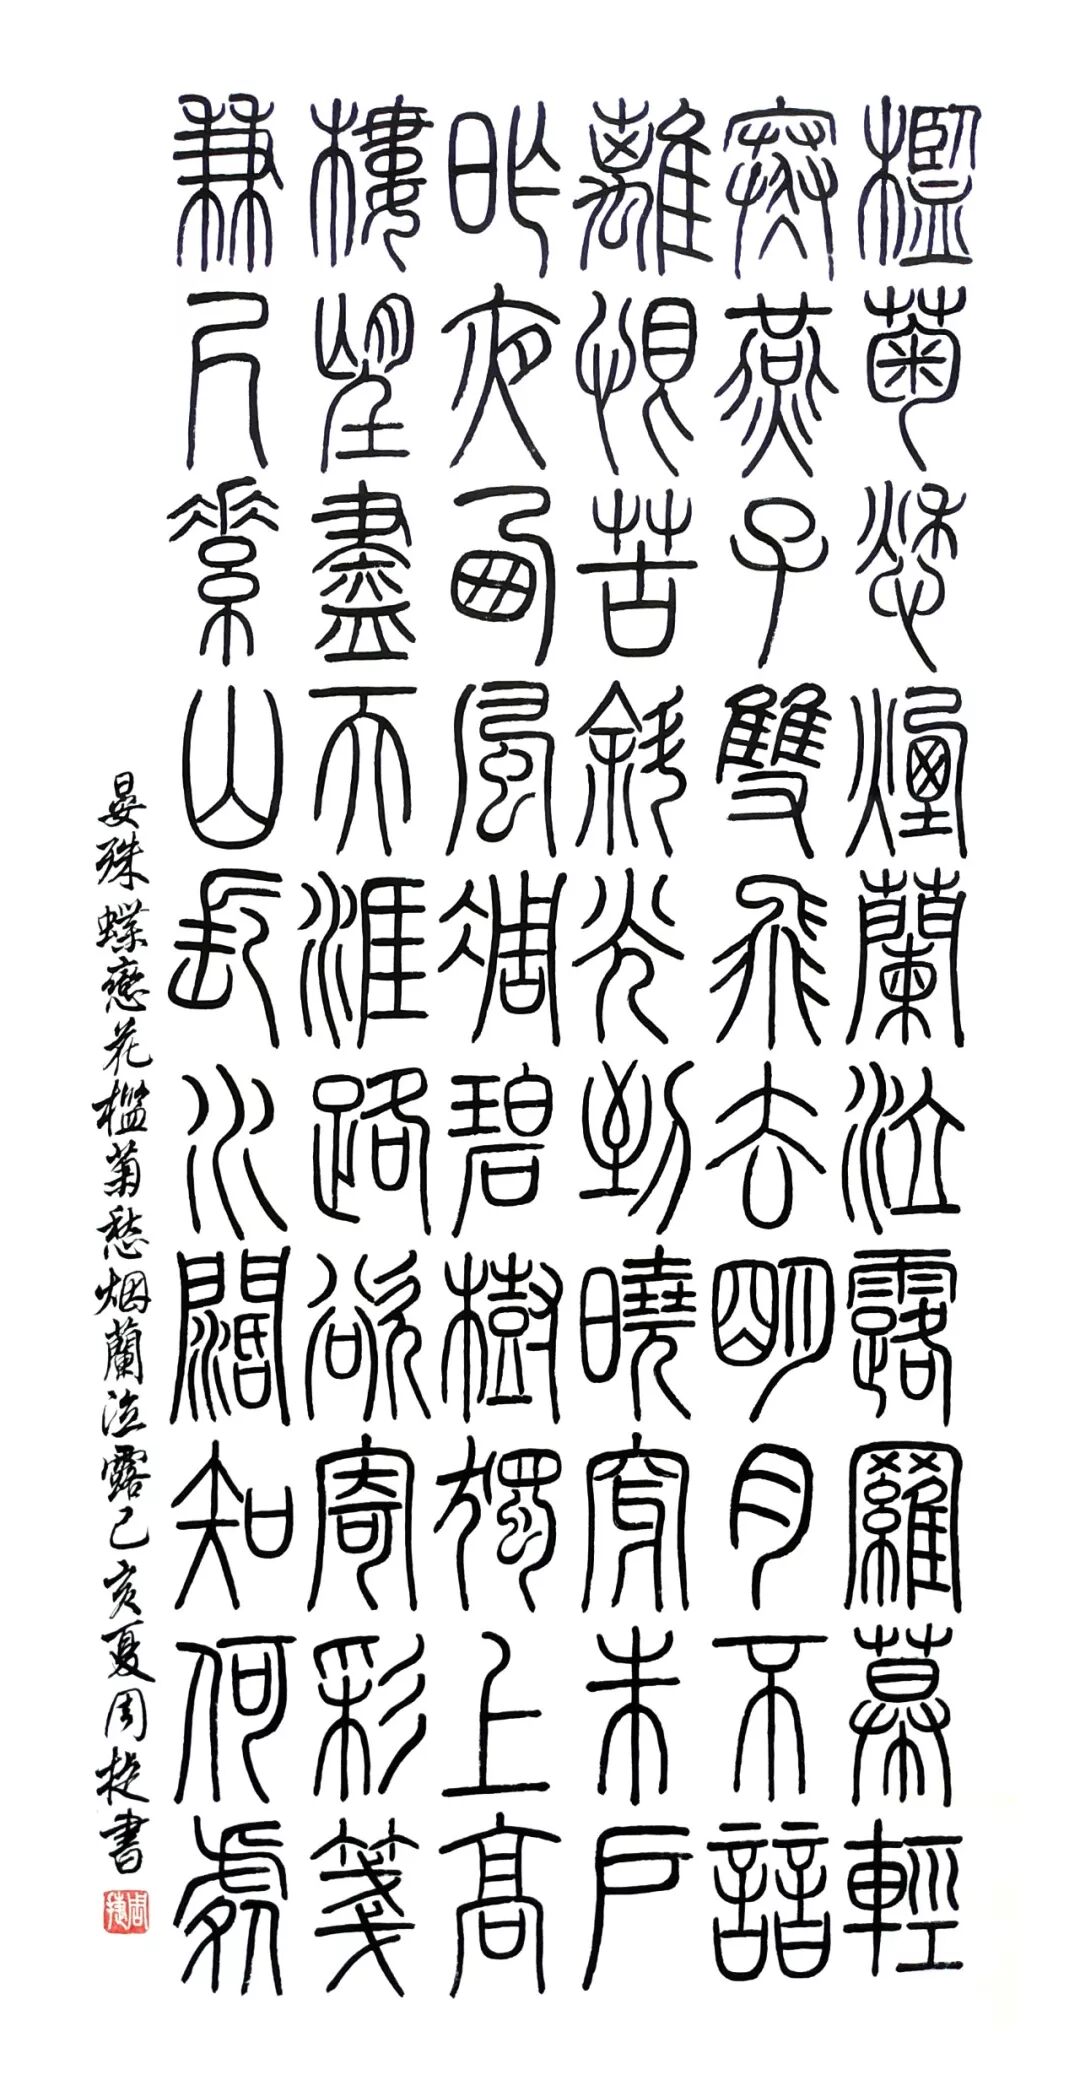 檻菊愁煙蘭泣露羅幕輕
寒燕子雙飛去明月不諳
離恨苦斜光到曉穿朱戶
昨夜西風凋碧樹獨上高
樓望盡天涯路欲寄彩箋
兼尺素山長水闊知何處
晏殊蝶戀花檻菊愁烟蘭泣露己亥夏周捷書
周捷